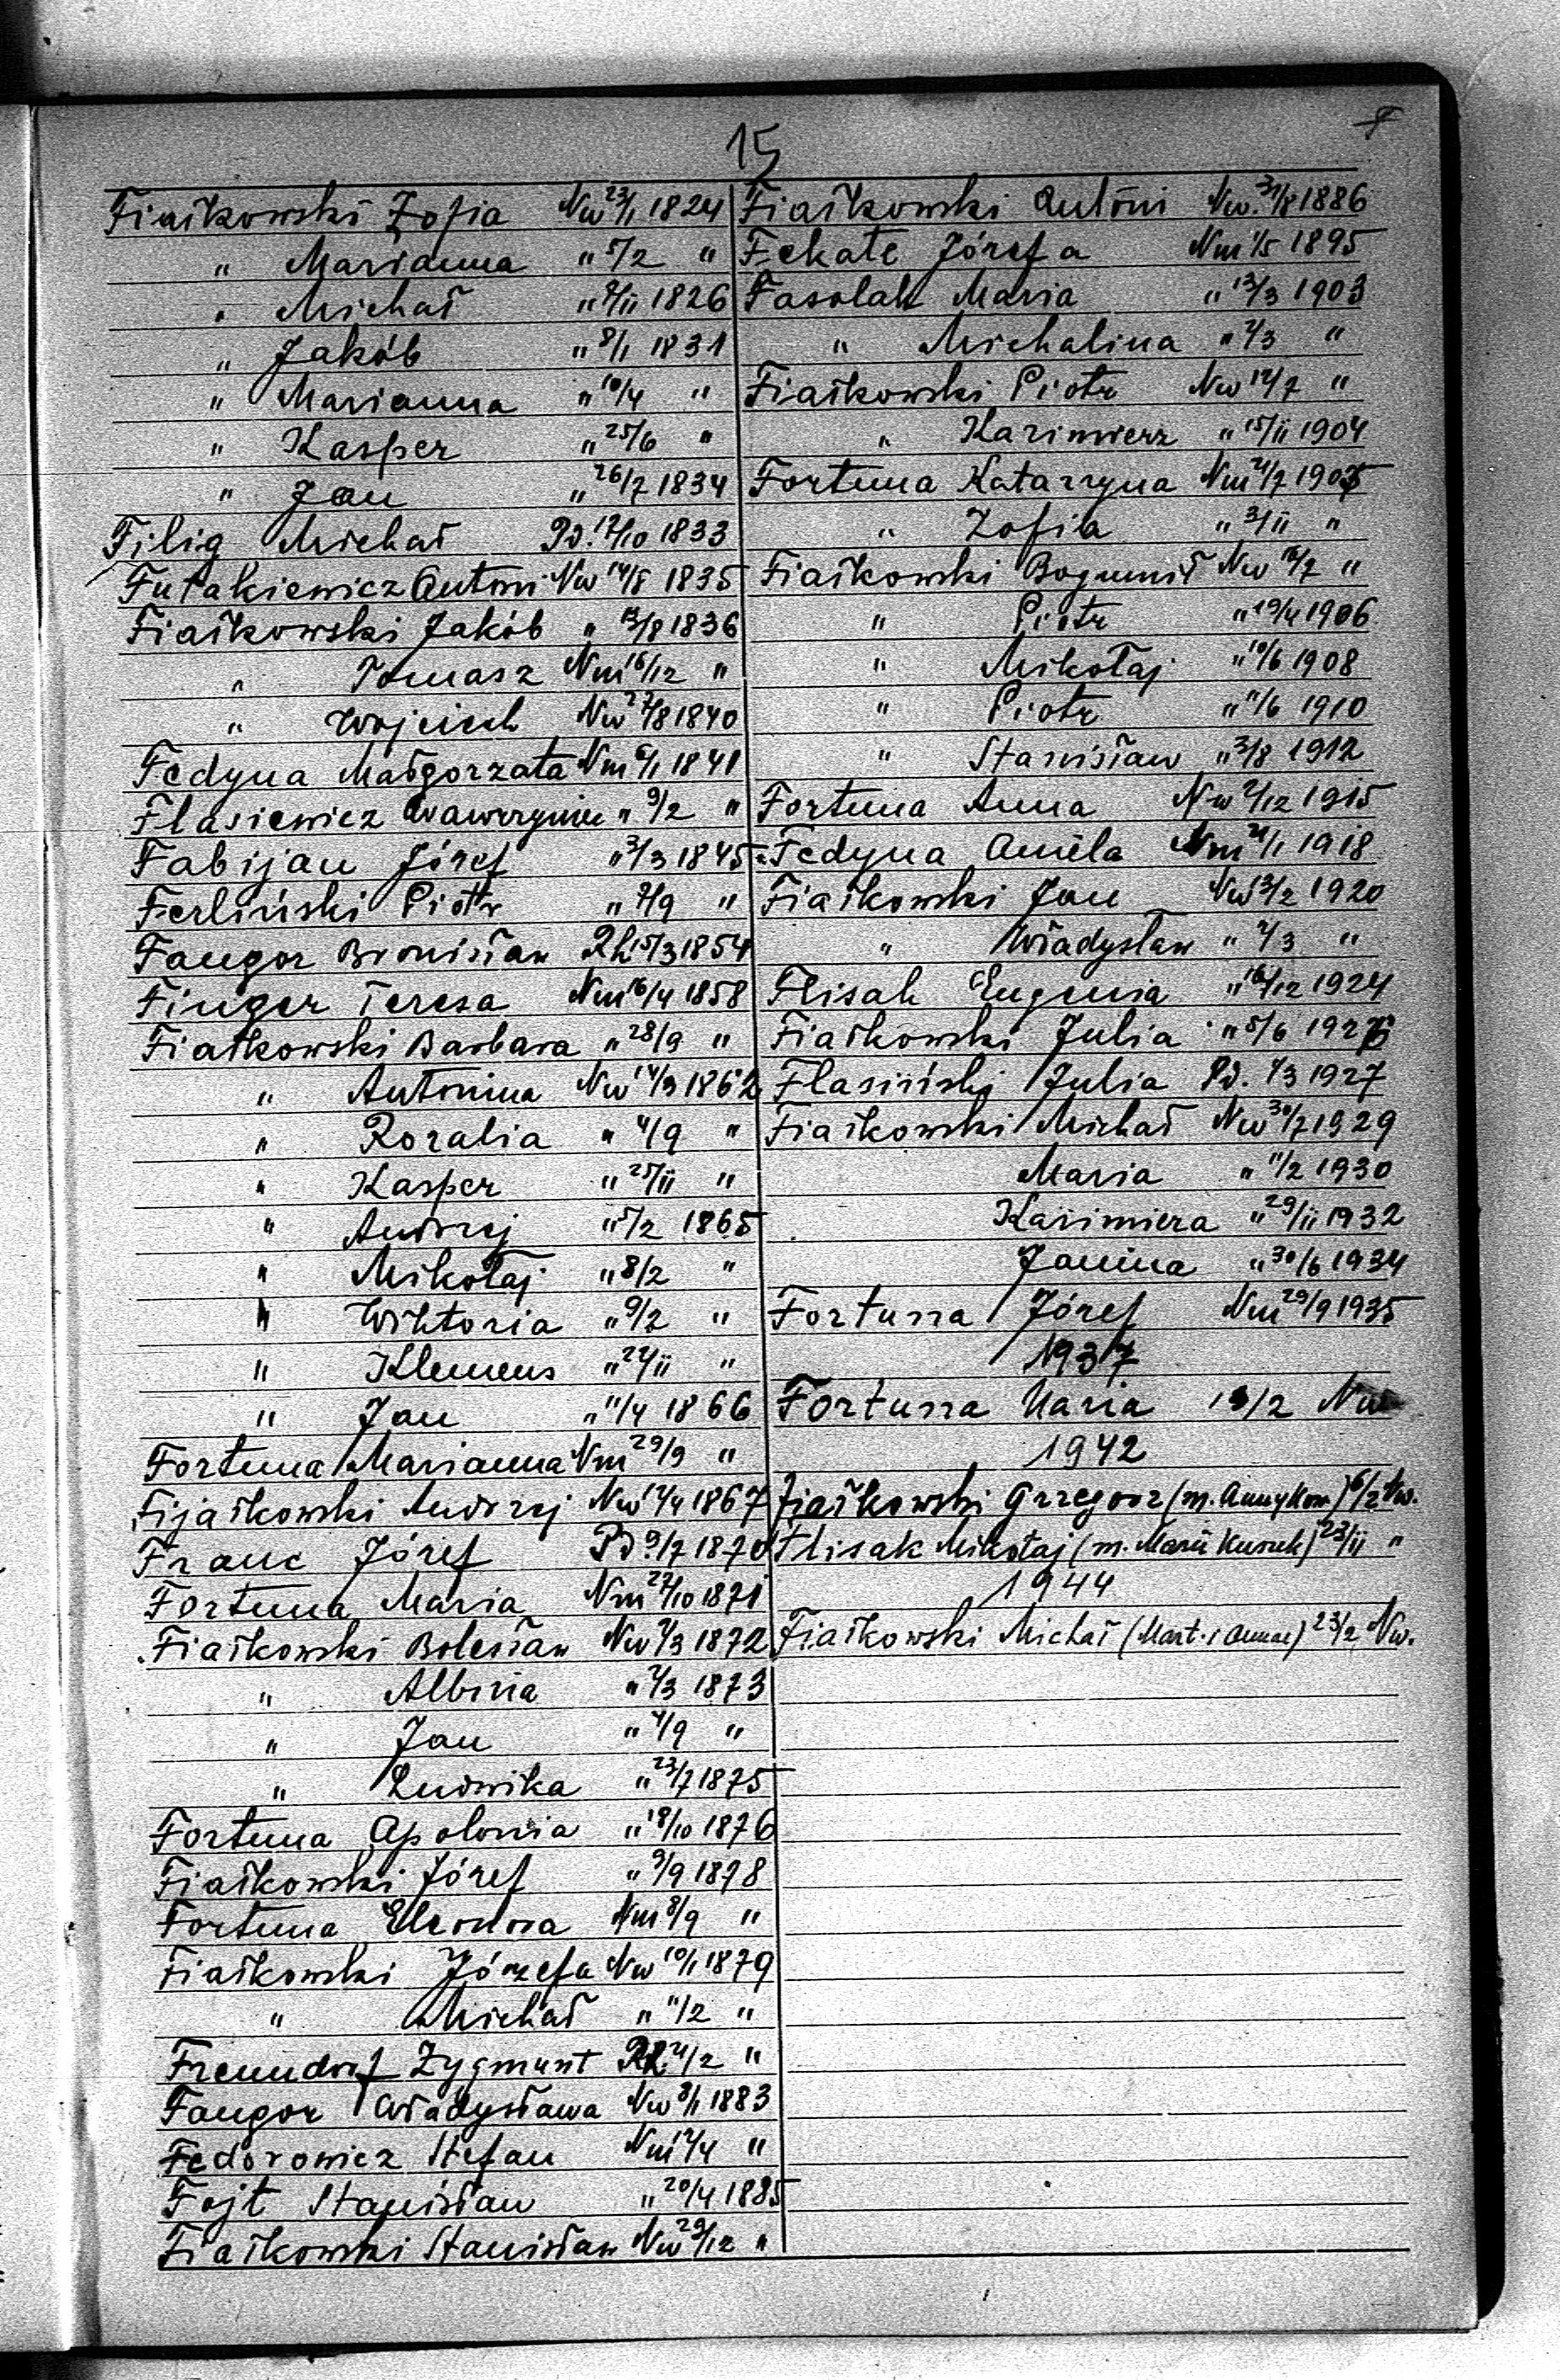 15
F
Fiałkowski Zofia Nw 23/1 1824
" Marianna " 5/2 "
" Michał " 9/11 1826
" Jakób " 8/1 1831
" Marianna " 10/4 "
" Kasper " 25/6 "
" Jan " 26/7 1834
Filig Michał Pd. 12/10 1833
Futakiewicz Antoni Nw 14/8 1835
Fiałkowski Jakób " 13/8 1836
" Tomasz Nm 16/12 "
" Wojciech Nw 27/8 1840
Fedyna Małgorzata Nm 6/1 1841
Flasiewicz Wawrzyniec " 9/2 "
Fabijan Józef " 3/3 1845
Ferliński Piotr " 2/9 "
Fangor Bronisław Rh 15/3 1854
Finger Teresa Nm 16/4 1858
Fiałkowski Barbara " 28/9 "
" Antonina Nw 14/3 1862
" Rozalia " 4/9 "
" Kasper " 25/11 "
" Andrzej " 5/2 1865
" Mikołaj " 8/2 "
" Wiktoria " 9/2 "
" Klemens " 22/11 "
" Jan " 11/4 1866
Fortuna Marianna Nm 29/9 "
Fijałkowski Andrzej Nw 12/4 1867
Franc Józef Pd 9/7 1870
Fortuna Maria Nm 22/10 1871
Fiałkowski Bolesław Nw 2/3 1872
" Albina " 2/3 1873
" Jan " 4/9 "
" Ludwika " 23/7 1875
Fortuna Apolonia " 18/10 1876
Fiałkowski Józef " 9/9 1878
Fortuna Eleonora Nm 8/9 "
Fiałkowski Józefa Nw 10/1 1879
" Michał " 11/2 "
Freundorf Zygmunt Rh 21/2 "
Fangor Władysława Nw 8/1 1883
Fedorowicz Stefan Nm 12/4 "
Fojt Stanisław " 20/4 1885
Fiałkowski Stanisław Nw 29/12 "
Fiałkowski Antoni Nw. 31/8 1886
Fekate Józefa Nm 1/5 1895
Fasolak Maria " 13/3 1903
" Michalina " 2/3 "
Fiałkowski Piotr Nw 12/7 "
" Kazimierz " 15/11 1904
Fortuna Katarzyna Nm 21/7 1905
" Zofia " 3/11 "
Fiałkowski Bogumił Nw 16/7 "
" Piotr " 19/4 1906
" Mikołaj " 10/6 1908
" Piotr " 11/6 1910
" Stanisław " 3/8 1912
Fortuna Anna Nw 2/12 1915
Fedyna Aniela Nm 21/1 1918
Fiałkowski Jan Nw 13/2 1920
" Władysław " 2/3 "
Flisak Eugenia " 16/12 1924
Fiałkowski Julia " 5/6 1926
Flasiński Julia Pd. 1/3 1927
Fiałkowski Michał Nw 30/7 1929
Maria " 11/2 1930
Kazimiera " 29/11 1932
Janina " 30/6 1934
Fortuna Józef Nm 29/9 1935
1937
Fortuna Maria /2 Nw
1942
Fiałkowski Grzegorz (m. Anny Kow.) 6/2 Nw.
Flisak Mikołaj (m. Marii ) 23/11 "
1944
Fiałkowski Michał (Mart. i Annae) 23/2 Nw.